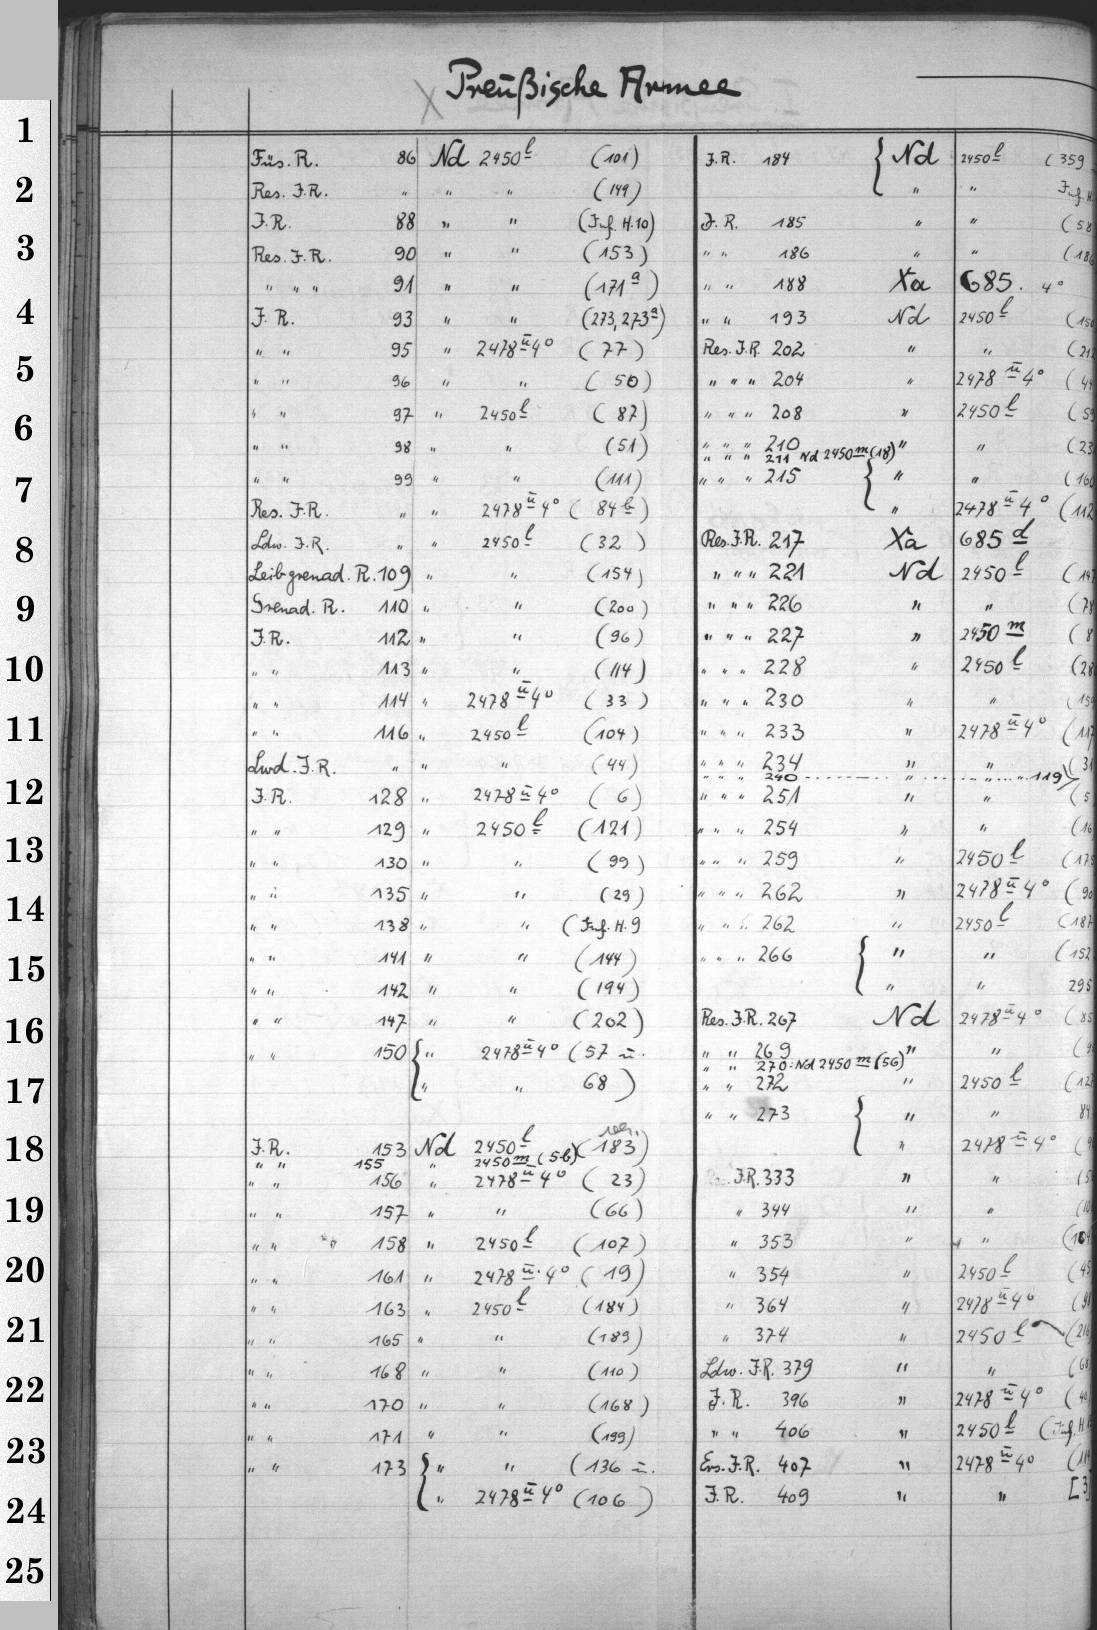 Preußische Armee
1
2
3
4
5
6
7
8
9
10
11
12
13
14
15
16
17
18
19
20
21
22
23
24
25
Füs. R. 86 Nd 2450 l (101)
Res. J.R. " " " (149)
J.R. 88 " " (Inf. H. 10)
Res. J.R. 90 " " (153)
" " " 91 " " (171 a)
J. R. 93 " " (273, 273 a)
" " 95 " 2478 ū 4° (77)
" " 96 " " (50)
" " 97 " 2450 l (87)
" " 98 " " (51)
" " 99 " " (111)
Res. J.R. " " 2478 ū 4° (84 b)
Ldw. J.R. " " 2450 l (32)
Leibgrenad. R. 109 " " (154)
Grenad. R. 110 " " (200)
J.R. 112 " " (96)
" " 113 " " (114)
" " 114 " 2478 ū 4° (33)
" " 116 " 2450 l (104)
Lwd. J.R. " " " (44)
J.R. 128 " 2478 ū 4° (6)
" " 129 " 2450 l (121)
" " 130 " " (99)
" " 135 " " (29)
" " 138 " " (Inf. H. 9
" " 141 " " (144)
" " 142 " " (194)
" " 147 " " (202)
" " 150 { " 2478 ū 4° (57 u.
" " 68)
J.R. 153 Nd 2450 l (183)
" " 155 " 2450 m (56)
" " 156 " 2478 ū 4° (23)
" " 157 " " (66)
" " 158 " 2450 l (107)
" " 161 " 2478 ū 4° (19)
" " 163 " 2450 l (184)
" " 165 " " (189)
" " 168 " " (110)
" " 170 " " (168)
" " 171 " " (199)
" " 173 { " " (136 u.
" 2478 ū 4° (106)
J.R. 184 { Nd 2450 l (359
" " Inf. H.
J. R. 185 " " (58
" " 186 " " (186
" " 188 Xa 685. 4°
" " 193 Nd 2450 l (150
Res. J.R. 202 " " (212
" " " 204 " 2478 ū 4° (44
" " " 208 " 2450 l (59
" " " 210 " " (23
" " " 211 Nd 2450 m (18)
" " " 215 { " " (160
" 2478 ū 4° (112
Res. J.R. 217 Xa 685 d
" " " 221 Nd 2450 l (147
" " " 226 " " (78
" " " 227 " 2450 m (8
" " " 228 " 2450 l (28
" " " 230 " " (159
" " " 233 " 2478 ū 4° (117
" " " 234 " " (31
" " " 240 " " 119)
" " " 251 " " (5
" " " 254 " " (16
" " " 259 " 2450 l (175
" " " 262 " 2478 ū 4° (90
" " " 262 " 2450 l (187
" " " 266 { " " (152
" " 295
Res. J.R. 267 Nd 2478 ū 4° (85
" " 269 " " (9
" " 270: Nd 2450 m (56)
" " 272 " 2450 l (127
" " 273 { " " 84
" 2478 ū 4° (9
J.R. 333 " " (5
" 344 " " (10
" 353 " " (104
" 354 " 2450 l (45
" 364 " 2478 ū 4° (91
" 374 " 2450 l (216
Ldw. J.R. 379 " " (60
J. R. 396 " 2478 ū 4° (40
" " 406 " 2450 l (Inf. H.
Ers. J.R. 407 " 2478 ū 4° (114
J.R. 409 " " [3]